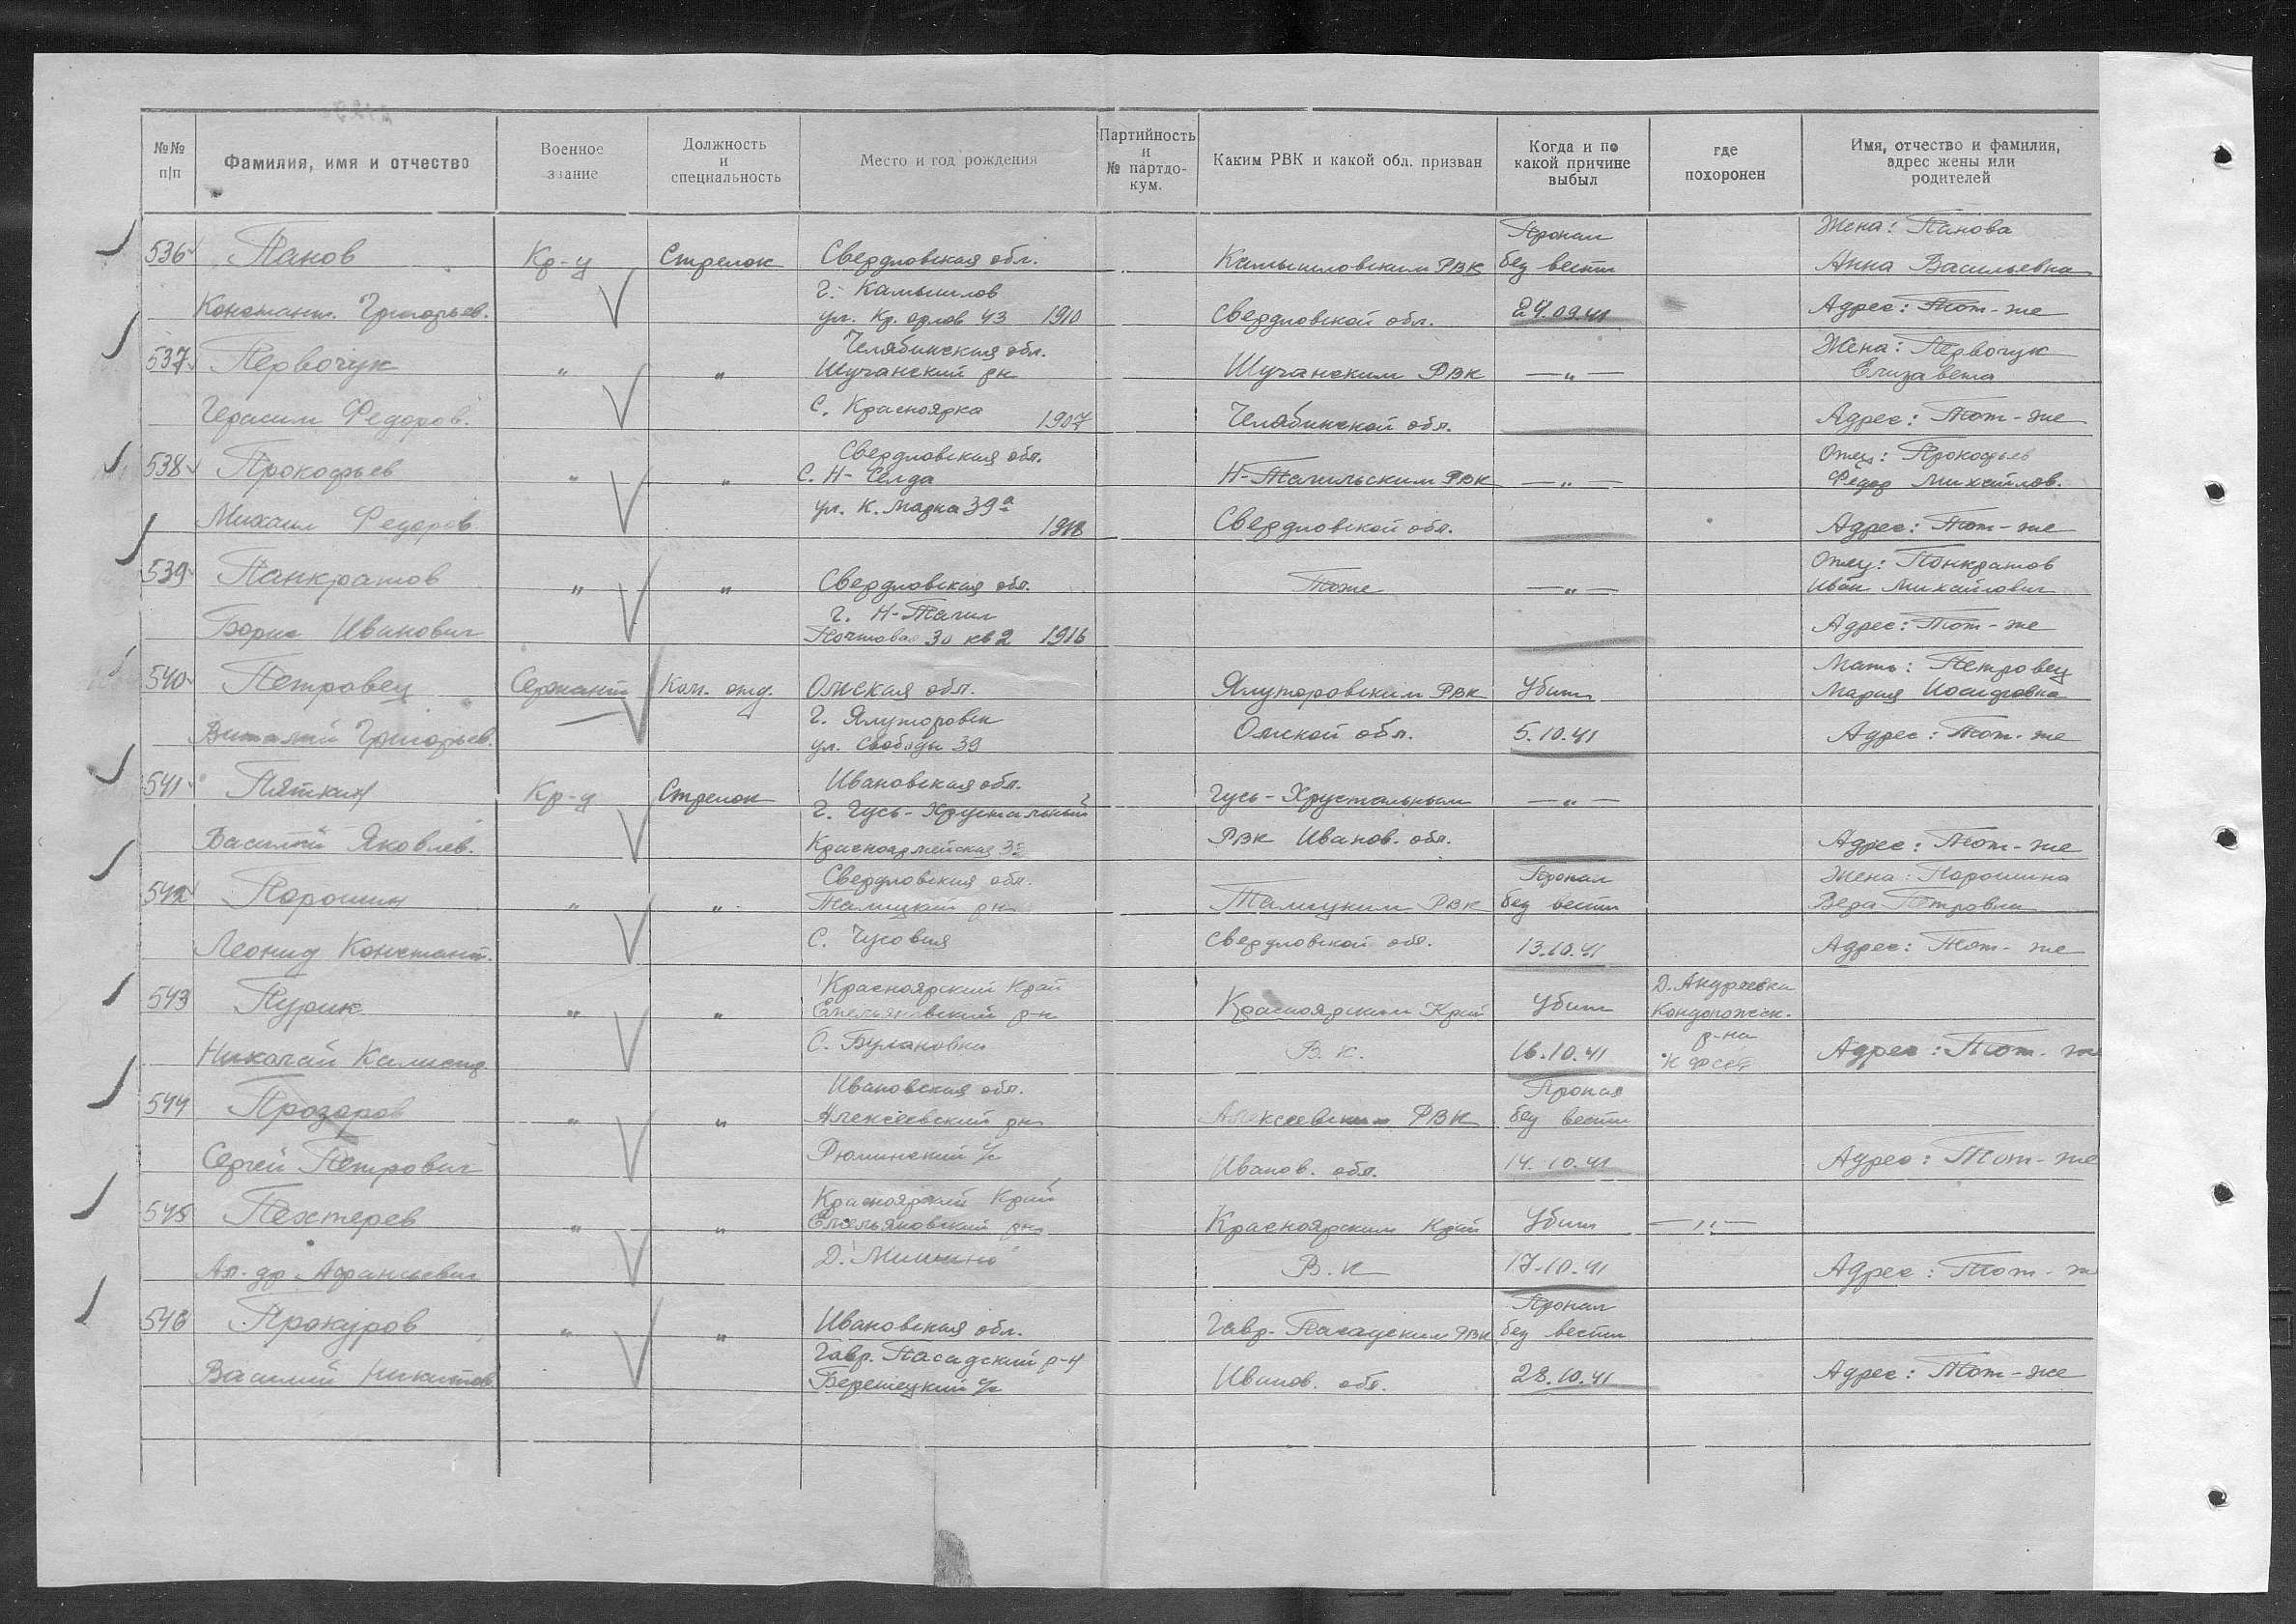 №№ п/п
Фамилия, имя и отчество
Военное звание
Должность и специальность
Место и год рождения
Партийность и № партдокум.
Каким РВК и какой обл. призван
Когда и по какой причине выбыл
где похоронен
Имя, отчество и фамилия, адрес жены или родителей
Пропал Жена: Панова
536 Панов Кр-ц Стрелок Свердловская обл. Камышловским РВК без вести Анна Васильевна
г. Камышлов
Констант. Григорьев. ул. Кр. орлов 43 1910 Свердловской обл. 24.09.41 Адрес: Тот-же
Челябинская обл. Жена: Первочук
537 Первочук " " Шучанский рн Шучанским РВК —"— Елизавета
Герасим Федоров. С. Красноярка 1907 Челябинской обл. Адрес: Тот-же
Свердловская обл. Отец: Прокофьев
538 Прокофьев " " С. Н-Селда Н-Тагильским РВК —"— Федор Михайлов.
ул. К. Маркa 39а
Михаил Федоров 1918 Свердловской обл. Адрес: Тот-же
Отец: Понкратов
539 Панкратов " " Свердловская обл. Тоже —"— Иван Михайлович
г. Н-Тагил
Борис Иванович Почтовая 30 кв 2 1916 Адрес: Тот-же
Мать: Петровец
540 Петровец Сержант Ком. отд. Омская обл. Ялуторовским РВК Убит Мария Иосифовна
г. Ялуторовск
Виталий Григорьев. ул. Свободы 39 Омской обл. 5.10.41 Адрес: Тот-же
Ивановская обл.
541 Пяткин Кр-ц Стрелок г. Гусь-Хрустальный Гусь-Хрустальным —"—
Василий Яковлев. Красноармейская РВК Иванов. обл. Адрес: Тот-же
Свердловская обл. Пропал Жена: Порошина
542 Порошин " " Талицкий рн Талицким РВК без вести Вера Петровна
Леонид Констант. С. Чусовия Свердловской обл. 13.10.41 Адрес: Тот-же
Красноярский Край Д. Андреевка
543 Пурик " " Емельяновский р-н Красноярским Край Убит Кондопожск.
р-на
Николай С. Булановка В. К. 16.10.41 К ФССР Адрес: Тот-же
Ивановская обл. Пропал
544 Прозоров " " Алексеевский рн Алексеевским РВК без вести
Сергей Петрович Рюминский с/с Иванов. обл. 14.10.41 Адрес: Тот-же
Красноярский Край
545 Пехтерев " " Емельяновский рн Красноярским Край Убит —"—
Ал-др Афанасьевич Д. Минино В. К 17.10.41 Адрес: Тот-ж
Пропал
546 Прокуров " " Ивановская обл. Гавр-Пасадским РВК без вести
Гавр. Пасадский р-н
Василий Никитов Берешецкий с/с Иванов. обл. 28.10.41 Адрес: Тот-же